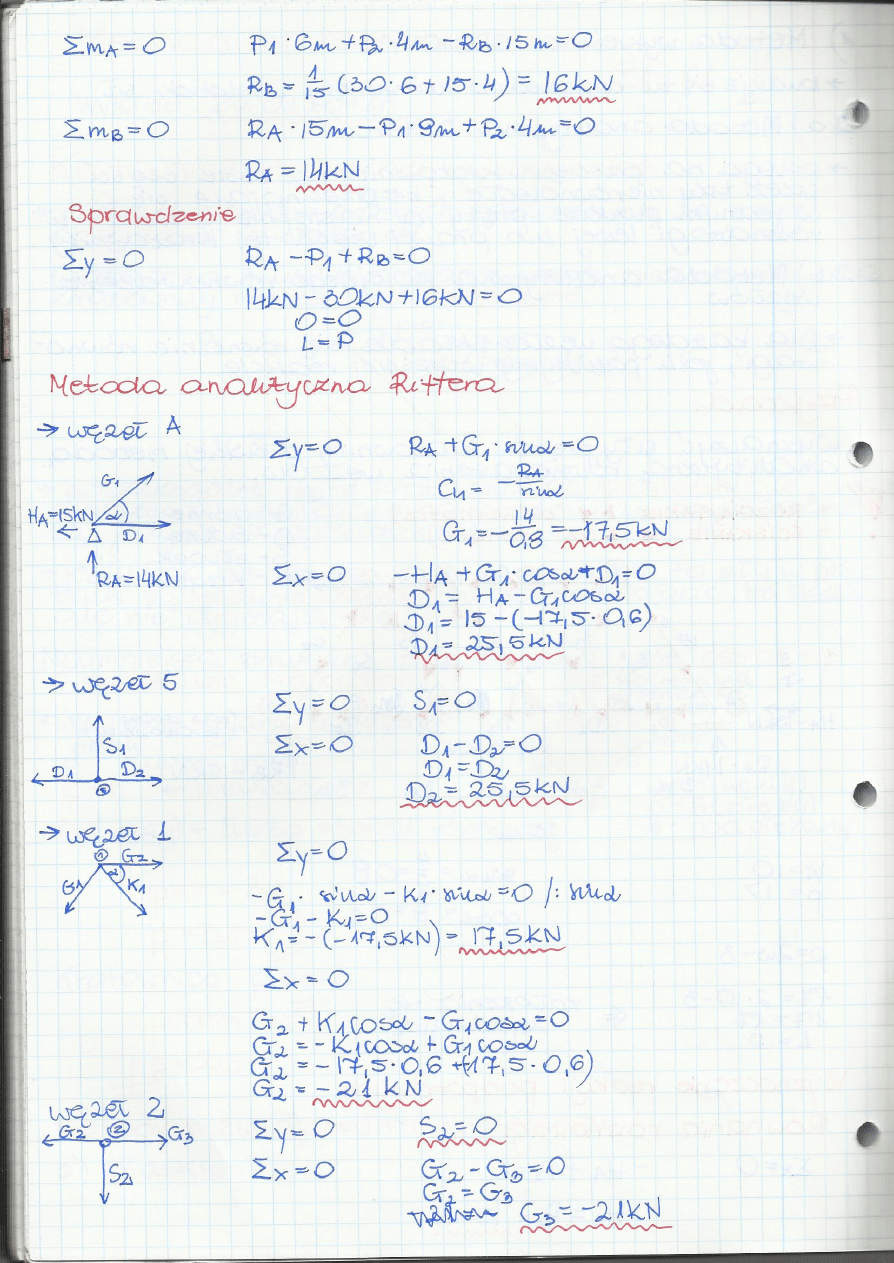 Σm_A = 0 P₁ · 6m + P₂ · 4m − R_B · 15m = 0
R_B = 1/15 (30 · 6 + 15 · 4) = 16kN
Σm_B = 0 R_A · 15m − P₁ · 9m + P₂ · 4m = 0
R_A = 14kN
Sprawdzenie
Σy = 0 R_A − P₁ + R_B = 0
14kN − 30kN + 16kN = 0
0 = 0
L = P
Metoda analityczna Rittera
→ węzeł A
Σy = 0 R_A + G₁ · sinα = 0
G₁ = − R_A/sinα
G₁ = − 14/0,8 = −17,5kN
G₁
α
H_A = 15kN
D₁
R_A = 14kN
Σx = 0 −H_A + G₁ · cosα + D₁ = 0
D₁ = H_A − G₁cosα
D₁ = 15 − (−17,5 · 0,6)
D₁ = 25,5kN
→ węzeł 5
Σy = 0 S₁ = 0
S₁
D₁ D₂
5
Σx = 0 D₁ − D₂ = 0
D₁ = D₂
D₂ = 25,5kN
→ węzeł 1
1
G₂
G₁ α K₁
Σy = 0
−G₁ · sinα − K₁ · sinα = 0 /: sinα
−G₁ − K₁ = 0
K₁ = −(−17,5kN) = 17,5kN
Σx = 0
G₂ + K₁cosα − G₁cosα = 0
G₂ = −K₁cosα + G₁cosα
G₂ = −17,5 · 0,6 + (17,5 · 0,6)
G₂ = −21 kN
węzeł 2
G₂ 2 G₃
S₂
Σy = 0 S₂ = 0
Σx = 0 G₂ − G₃ = 0
G₂ = G₃
G₃ = −21kN